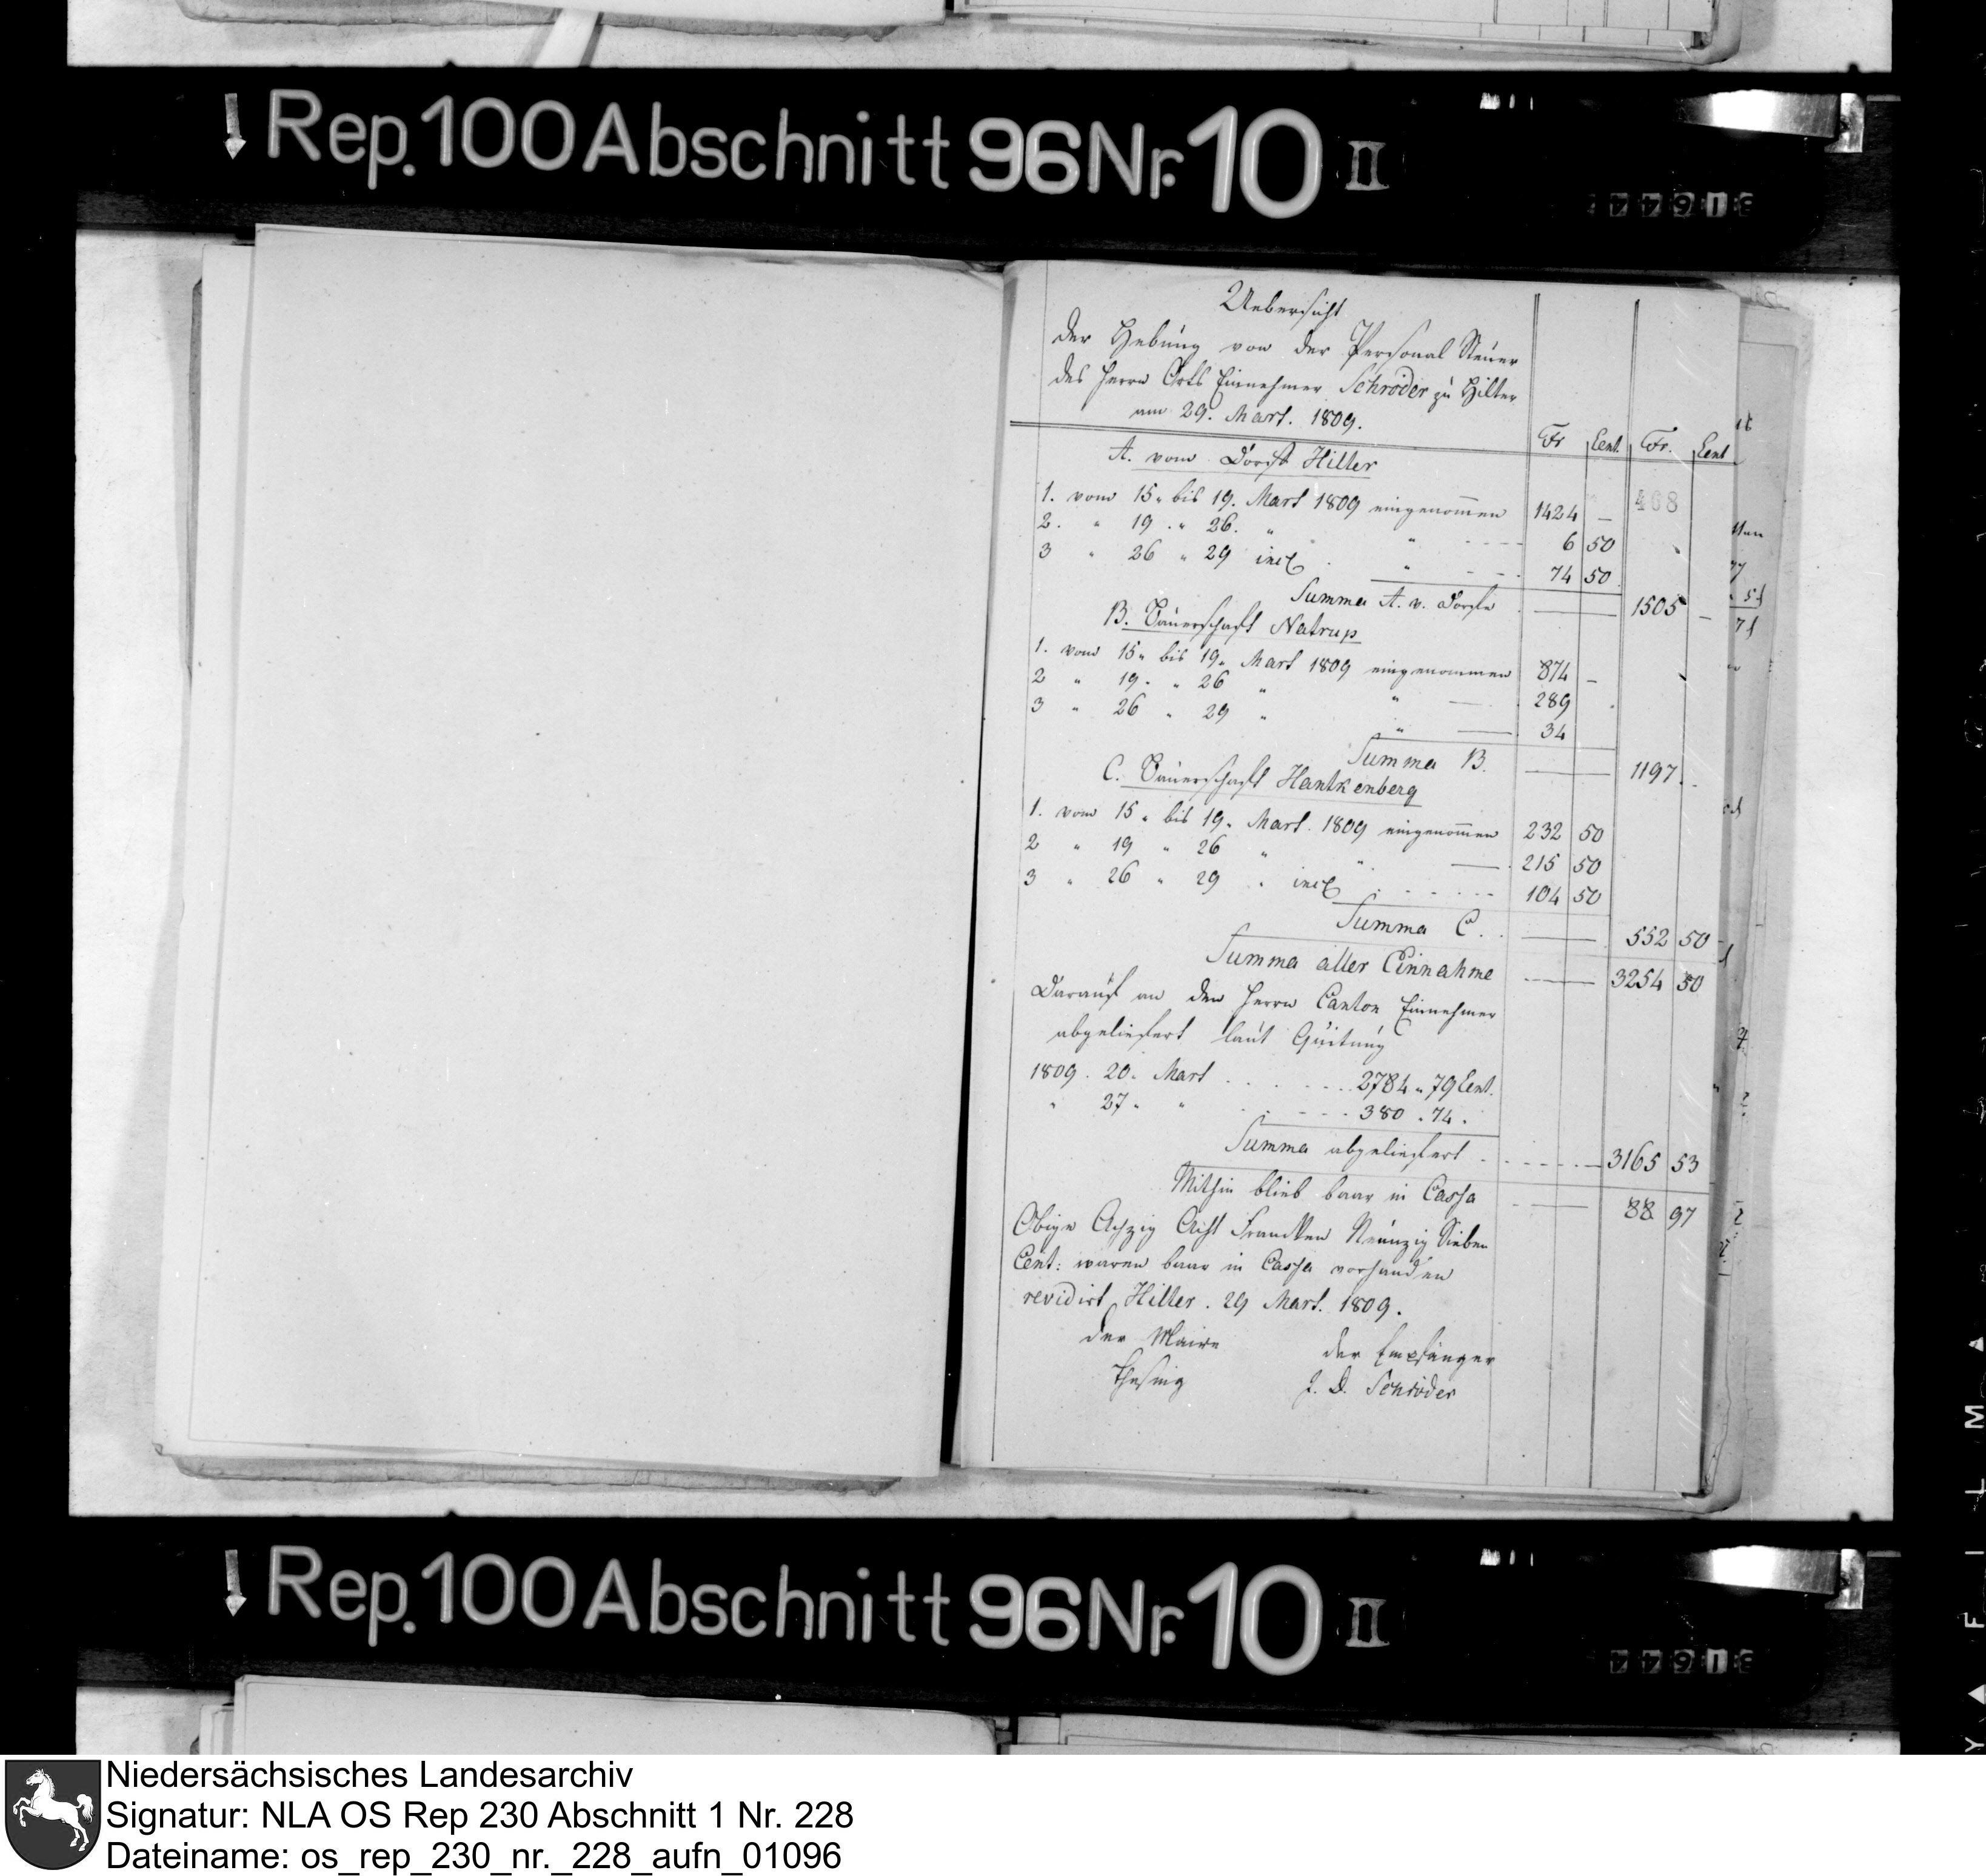 Rep. 100 Abschnitt 96 Nr. 10 II
Uebersicht
der Hebung von der Personal Steuer
des Herrn Orts Einnehmer Schröder zu Hilter
am 29. Mart. 1809.
Fr Cent. Fr. Cent
A. vom Dorfe Hilter
468
1. vom 15. bis 19. Mart 1809 eingenommen 1424 –
2. " 19. " 26. " " 6 50
3 " 26 " 29 incl. " 74 50
Summa A. v. Dorfe 1505 –
B. Bauerschaft Natrup
1. vom 15. bis 19. Mart 1809 eingenommen 874 –
2 " 19. " 26 " " 289
3 " 26 " 29 " " 34
Summa B. 1197. –
C. Bauerschaft Hankenberg
1. vom 15. bis 19. Mart. 1809 eingenommen 232 50
2 " 19 " 26 " " 215 50
3 " 26 " 29 " incl. 104 50
Summa C. 552 50
Summa aller Einnahme 3254 50
Darauf an den Herrn Canton Einnehmer
abgeliefert laut Quitung
1809. 20. Mart 2784 " 79 Cent.
" 27. " 380 . 74.
Summa abgeliefert 3165 53
Mithin blieb baar in Cassa 88 97
Obige Achzig Acht Francken Neunzig Sieben
Cent: waren baar in Cassa vorhanden
revidirt Hilter. 29 Mart. 1809.
der Maire der Empfänger
Thesing J. D. Schröder
Rep. 100 Abschnitt 96 Nr. 10 II
Niedersächsisches Landesarchiv
Signatur: NLA OS Rep 230 Abschnitt 1 Nr. 228
Dateiname: os_rep_230_nr._228_aufn_01096